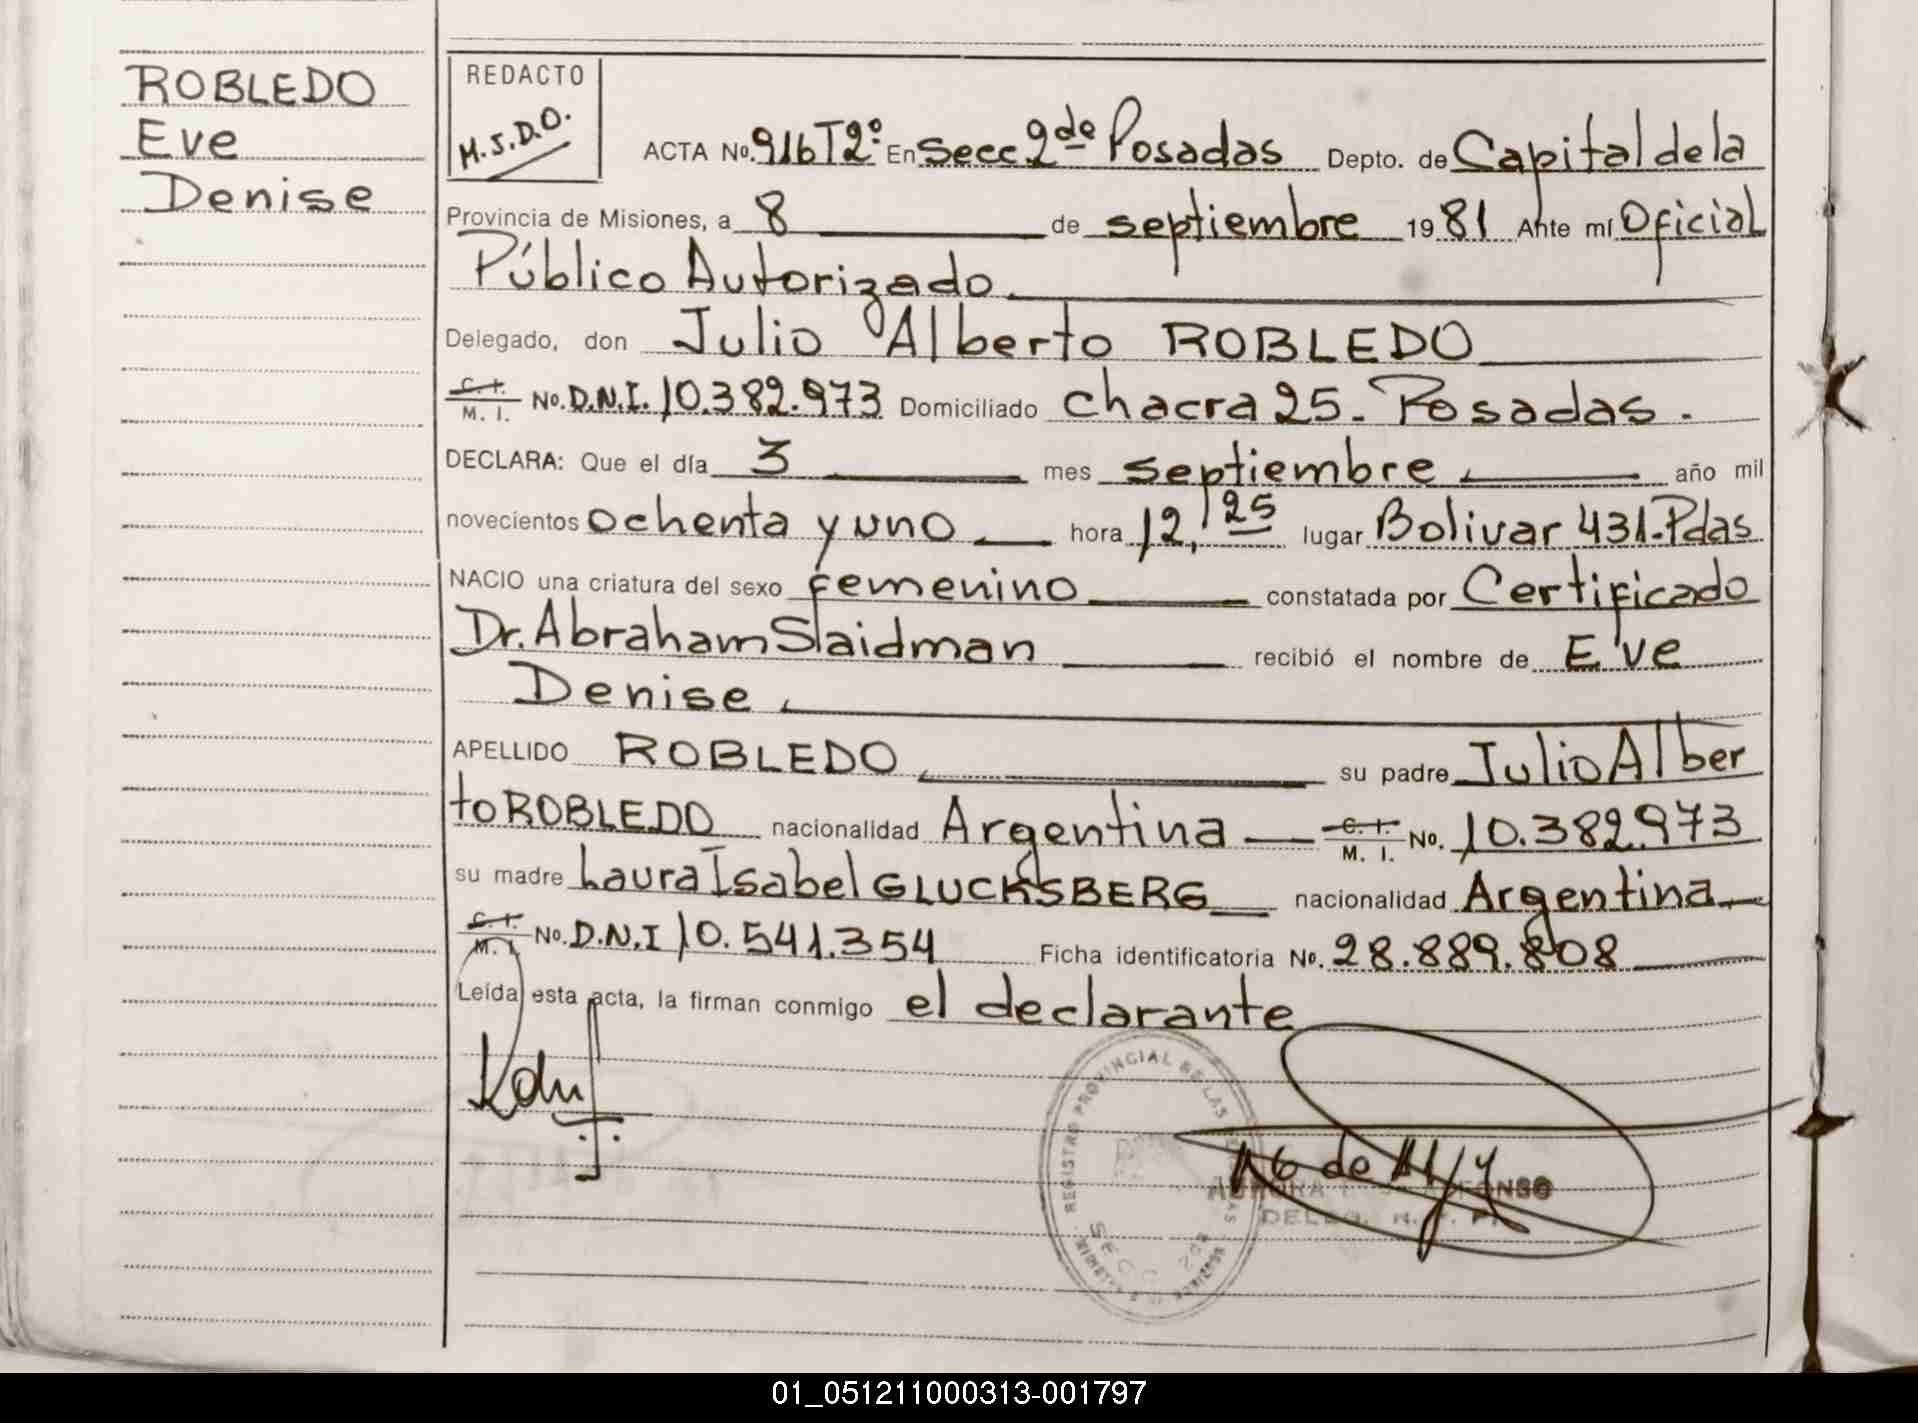 ROBLEDO
Eve
Denise
REDACTO
M.S.D.O.
ACTA No. 916 T2º En Secc. 2da Posadas Depto. de Capital de la
Provincia de Misiones, a 8 de septiembre 1981 Ante mí Oficial
Público Autorizado
Delegado, don Julio Alberto ROBLEDO
C. I. M. I. No. D.N.I. 10.382.973 Domiciliado Chacra 25. Posadas.
DECLARA: Que el día 3 mes septiembre año mil
novecientos ochenta y uno hora 12,25 lugar Bolivar 431. Pdas
NACIO una criatura del sexo femenino constatada por Certificado
Dr. Abraham Slaidman recibió el nombre de Eve
Denise
APELLIDO ROBLEDO su padre Julio Alber
to ROBLEDO nacionalidad Argentina C. I. M. I. No. 10.382.973
su madre Laura Isabel GLUCKSBERG nacionalidad Argentina
C. I. M. I. No. D.N.I 10.541.354 Ficha identificatoria No. 28.889.808
Leída esta acta, la firman conmigo el declarante
REGISTRO PROVINCIAL DE LAS PERSONAS
01_051211000313-001797